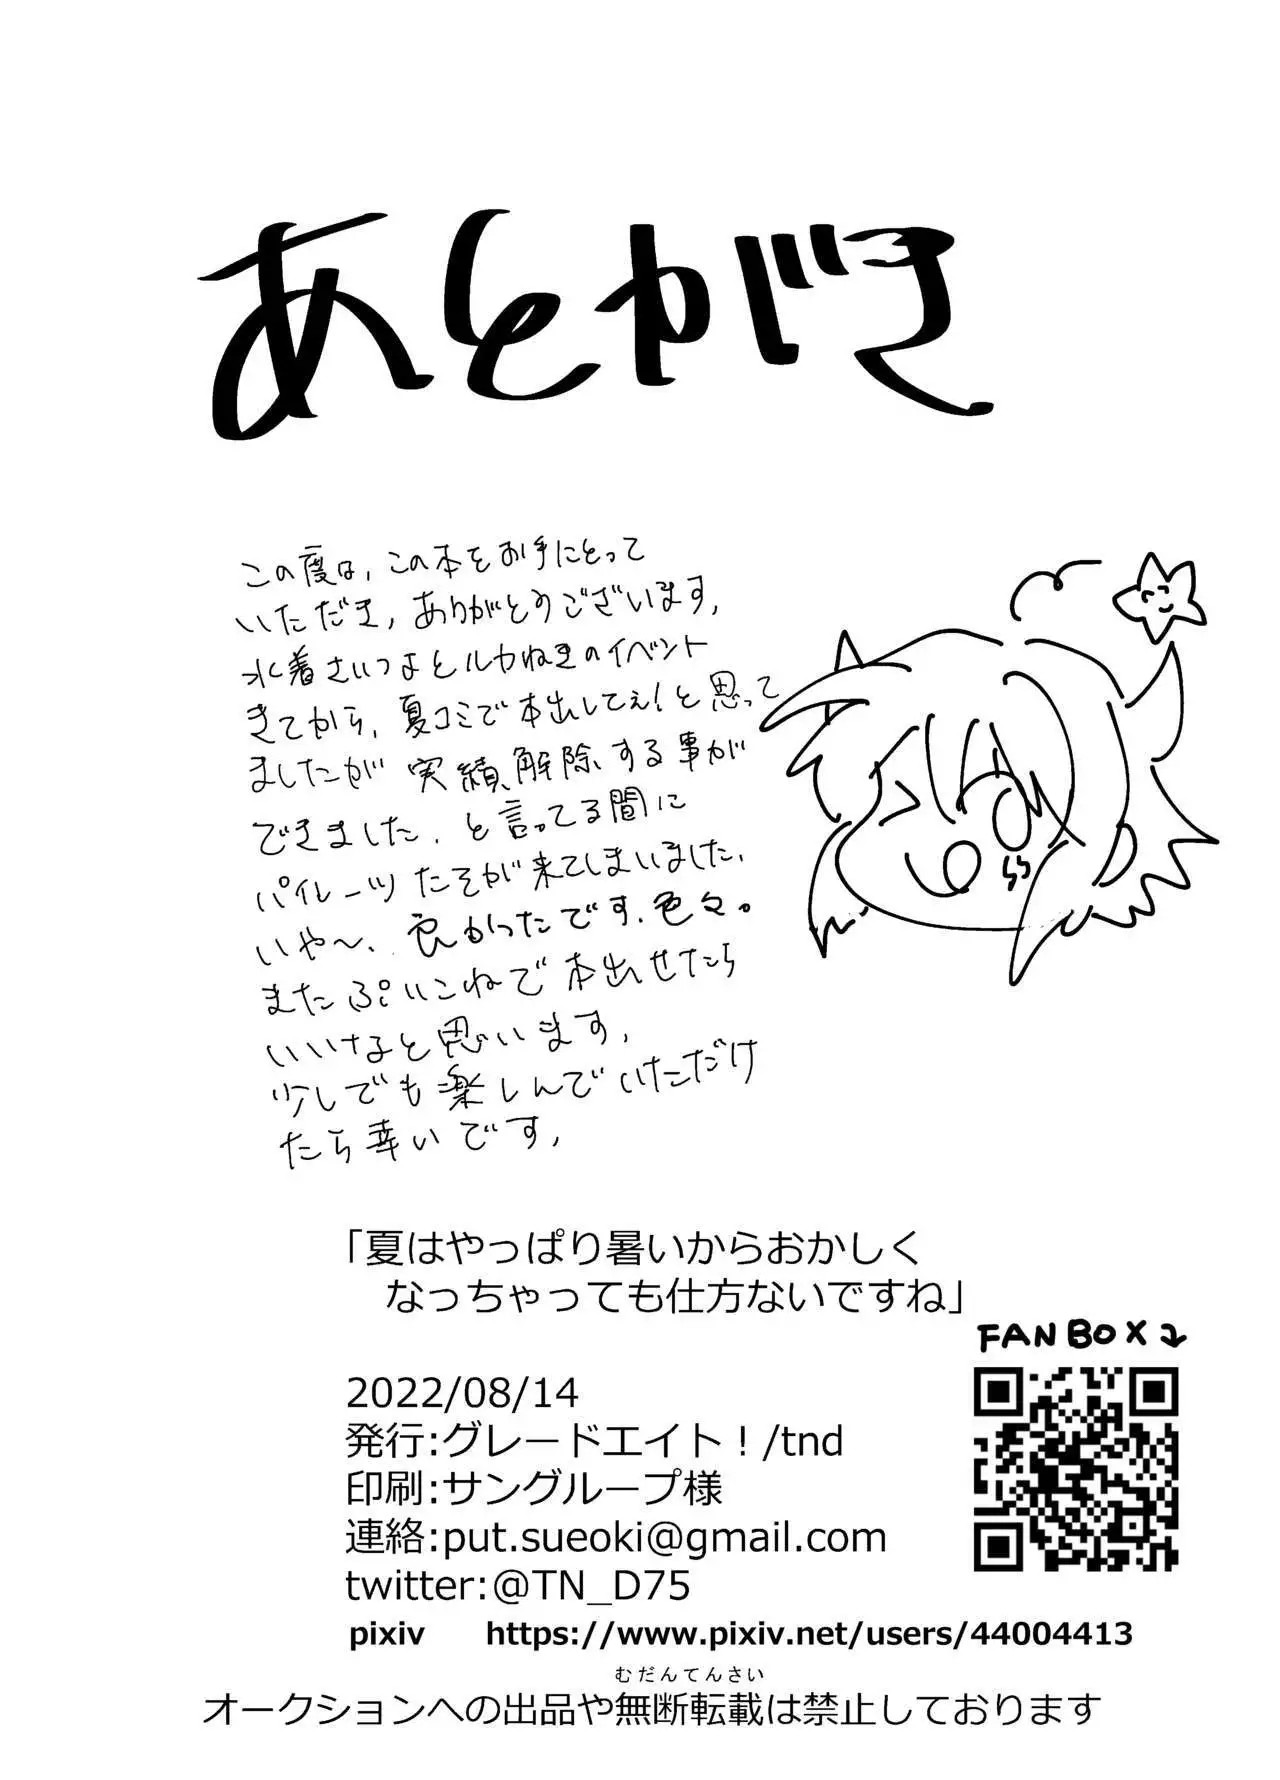 あとがき
この度は、この本をお手にとって
いただき、ありがとうございます、
水着さいつよとルカねきのイベント
きてから、夏コミで本出してぇ!と思って
ましたが 実績解除する事が
できました、と言ってる間に
パイレーツたそが来てしまいました、
いや〜、良かったです、色々。
またぷいこねで本出せたら
いいなと思います、
少しでも楽しんでいただけ
たら幸いです、
「夏はやっぱり暑いからおかしく
なっちゃっても仕方ないですね」
FANBOX
2022/08/14
発行:グレードエイト！/tnd
印刷:サングループ様
連絡:put.sueoki@gmail.com
twitter:@TN_D75
pixiv https://www.pixiv.net/users/44004413
むだんてんさい
オークションへの出品や無断転載は禁止しております